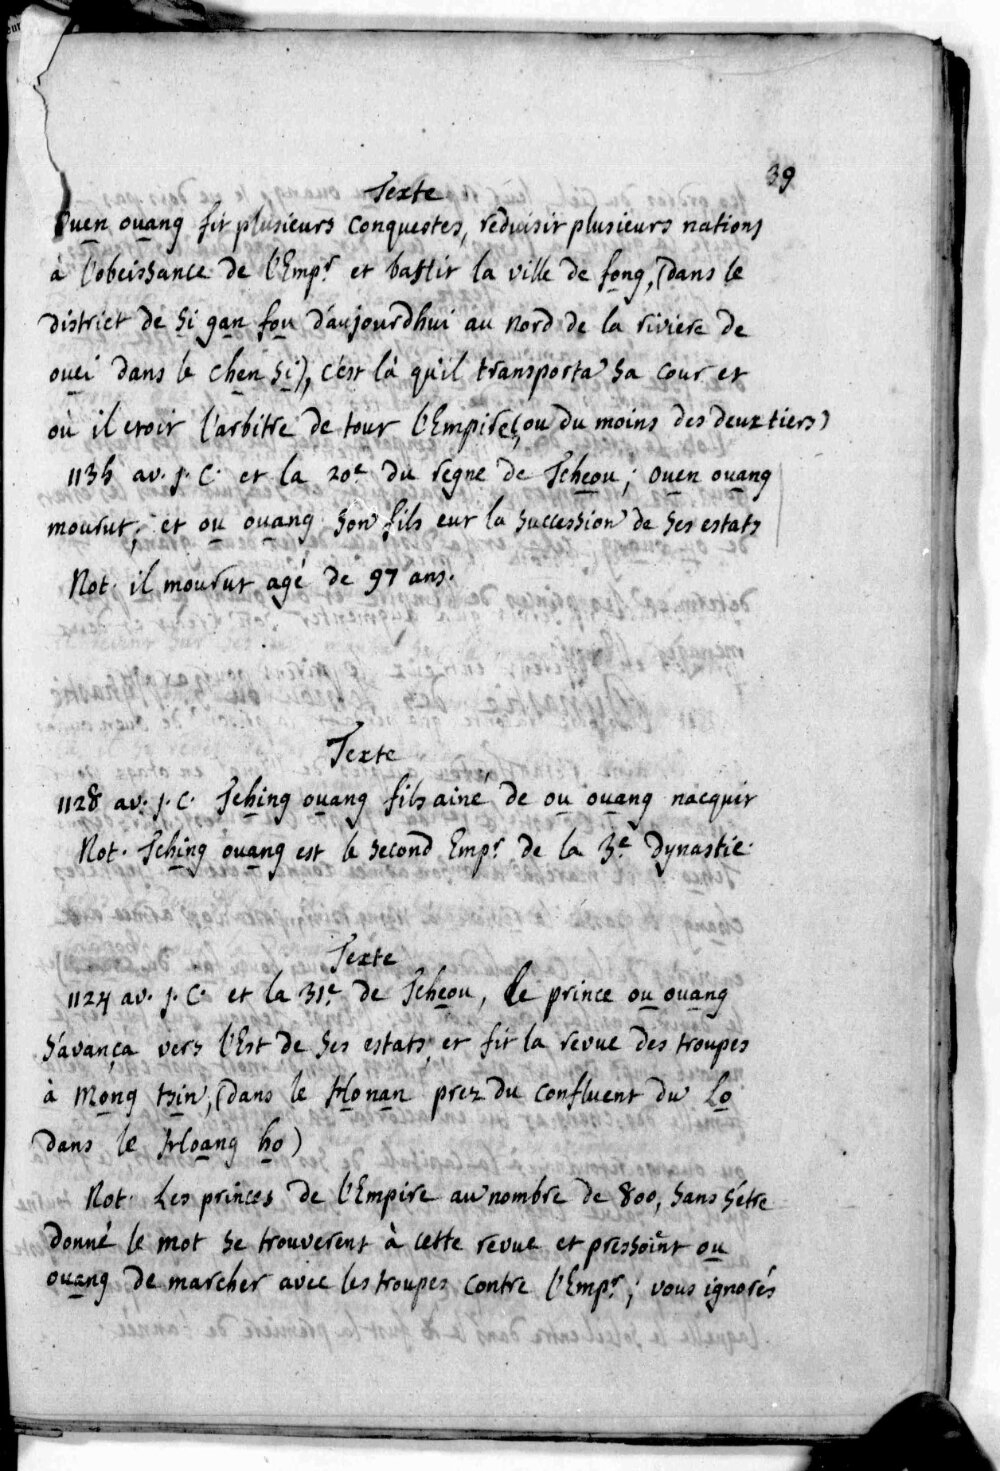 39
Texte
Ouen ouang fit plusieurs conquestes, reduisit plusieurs nations
à l'obeissance de l'Empr et bastit la ville de fong, (dans le
district de si gan fou d'aujourdhui au nord de la riviere de
ouei dans le chen si), c'est là qu'il transporta sa cour et
où il etoit l'arbitre de tout l'Empire (ou du moins des deux tiers)
1135 av. J. C. et la 20e du regne de Tcheou; ouen ouang
mourut, et ou ouang son fils eut la succession de ses estats
Not. il mourut agé de 97 ans.
Texte
1128 av. J. C. Tching ouang fils ainé de ou ouang nacquit
Not. Tching ouang est le second Empr de la 3e dynastie.
Texte
1124 av. J. C. et la 31e de Tcheou, le prince ou ouang
s'avança vers l'Est de ses estats, et fit la revue des troupes
à Mong tsin, (dans le Honan prez du confluent du Lo
dans le Hoang ho)
Not. Les princes de l'Empire au nombre de 800, sans s'être
donné le mot se trouverent à cette revue et pressoint ou
ouang de marcher avec les troupes contre l'Empr; vous ignorés